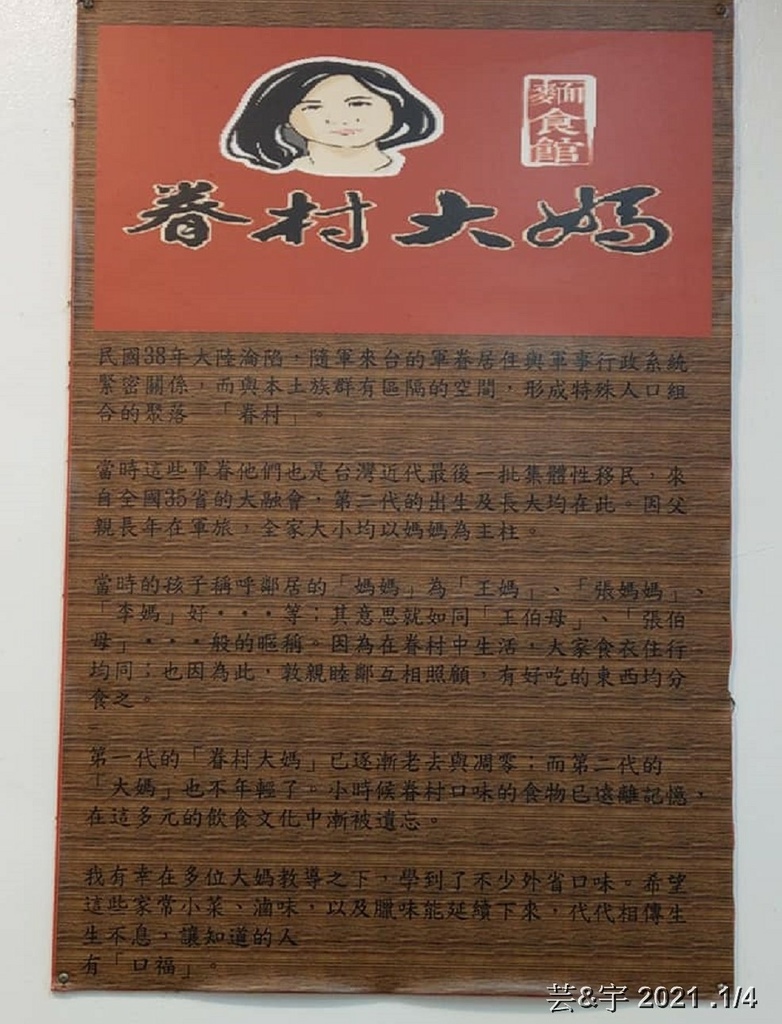 麵食館
眷村大媽
民國38年大陸淪陷，隨軍來台的軍眷居住與軍事行政系統
緊密關係，而與本土族群有區隔的空間，形成特殊人口組
合的聚落　「眷村」。
當時這些軍眷他們也是台灣近代最後一批集體性移民，來
自全國35省的大融會，第二代的出生及長大均在此。因父
親長年在軍旅，全家大小均以媽媽為主柱。
當時的孩子稱呼鄰居的「媽媽」為「王媽」、「張媽媽」、
「李媽」好・・・等；其意思就如同「王伯母」、「張伯
母」・・・般的暱稱。因為在眷村中生活，大家食衣住行
均同；也因為此，敦親睦鄰互相照顧，有好吃的東西均分
食之。
第一代的「眷村大媽」已逐漸老去與凋零；而第二代的
「大媽」也不年輕了。小時候眷村口味的食物已遠離記憶，
在這多元的飲食文化中漸被遺忘。
我有幸在多位大媽教導之下，學到了不少外省口味。希望
這些家常小菜、滷味，以及臘味能延續下來，代代相傳生
生不息，讓知道的人
有「口福」。
芸&宇 2021 .1/4